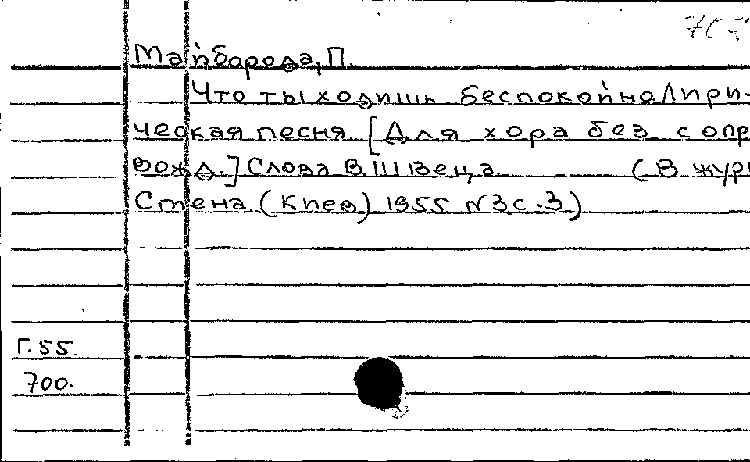 Майборода, П.
Что ты ходишь беспокойна Лири-
ческая песня [Для хора без сопр
вожд.] Слова В. Швеца (В журн
Стена (Киев) 1955 N3 с. 3)
Г. 55
700.